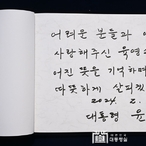 어려운 분들과 
사랑해주신 육영
어진 뜻을 기억하며
따뜻하게 살피겠
2024. 2.
대통령 윤
대통령실